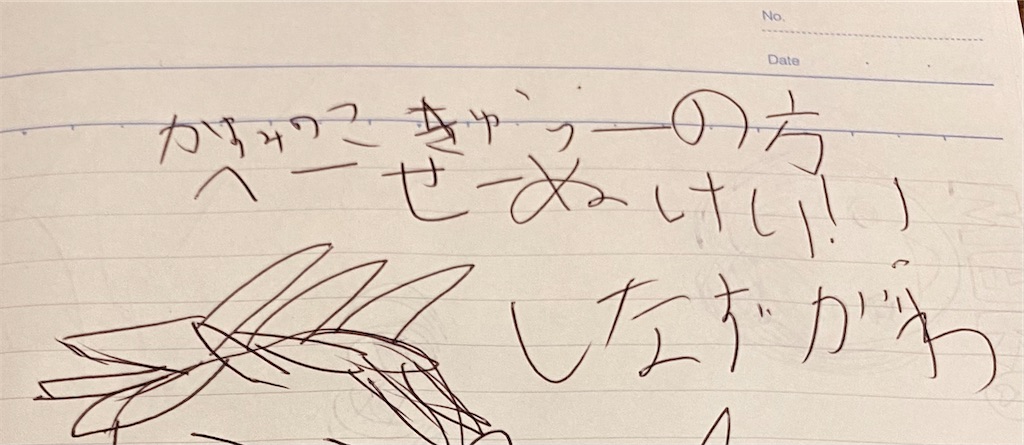 No.
Date
かぜのこきゅうーの方
へーせーぬけい!!
しなずがわ